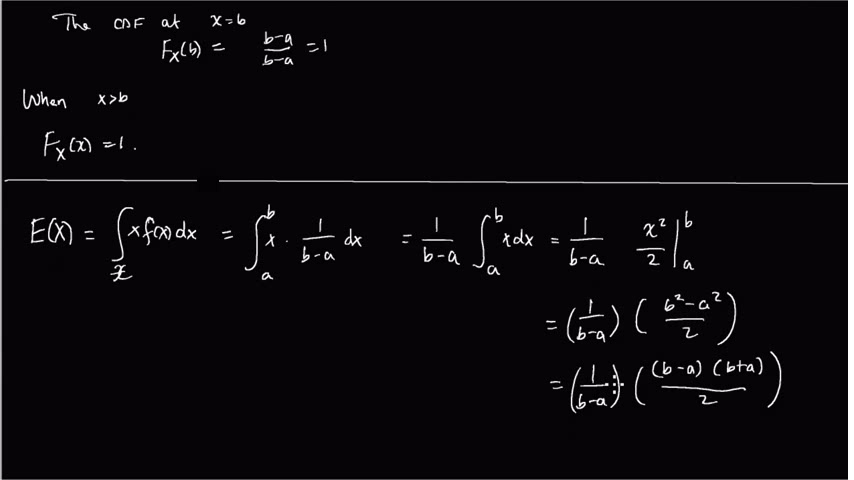 The CDF at x=b
F_X(b) = \frac{b-a}{b-a} = 1
When x>b
F_X(x) = 1.
E(X) = \int_{\mathcal{X}} x f(x) dx = \int_a^b x \cdot \frac{1}{b-a} dx = \frac{1}{b-a} \int_a^b x dx = \frac{1}{b-a} \frac{x^2}{2} |_a^b
= (\frac{1}{b-a}) (\frac{b^2-a^2}{2})
= (\frac{1}{b-a}) \cdot (\frac{(b-a)(b+a)}{2})